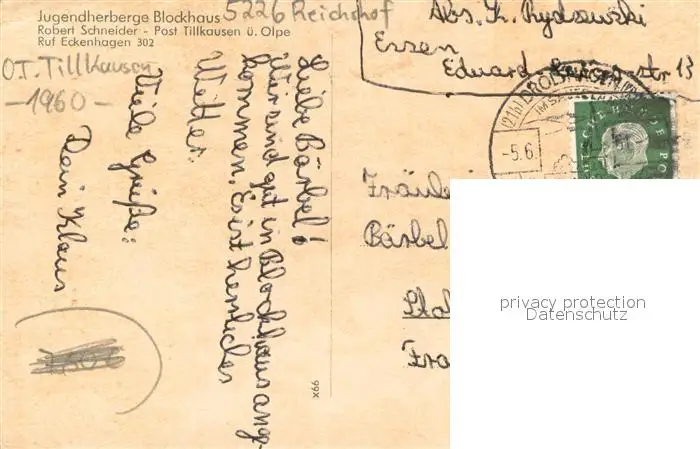 Jugendherberge Blockhaus
Robert Schneider - Post Tillkausen ü. Olpe
Ruf Eckenhagen 302
5226 Reichshof
OT. Tillkausen
-1960-
Liebe Bärbel!
Wir sind gut in Blockhaus ange-
kommen. Es ist herrliches
Wetter.
Viele Grüße:
Dein Klaus
Abs. K. Rydzewski
Essen
Eduard str 13
(21b) DROLSHAGEN
-5.6.
Fräulein
Bärbel
x66
privacy protection
Datenschutz